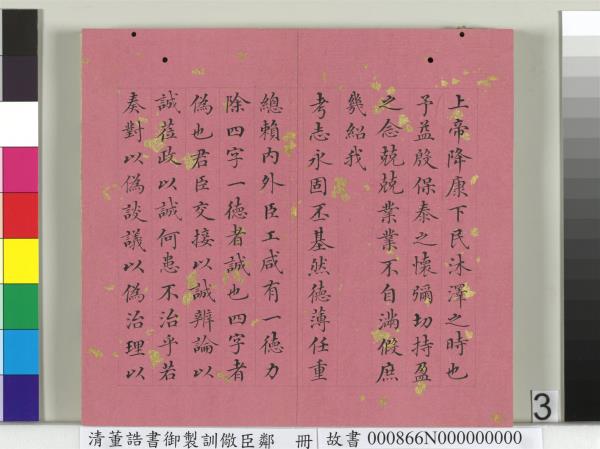 上帝降康下民沐澤之時也
予益殷保泰之懷彌切持盈
之念兢兢業業不自滿假庶
幾紹我
考志永固丕基然德薄任重
總賴內外臣工咸有一德力
除四字一德者誠也四字者
偽也君臣交接以誠辨論以
誠莅政以誠何患不治乎若
奏對以偽談議以偽治理以
3
清董誥書御製訓儆臣鄰　冊
故書 000866N000000000